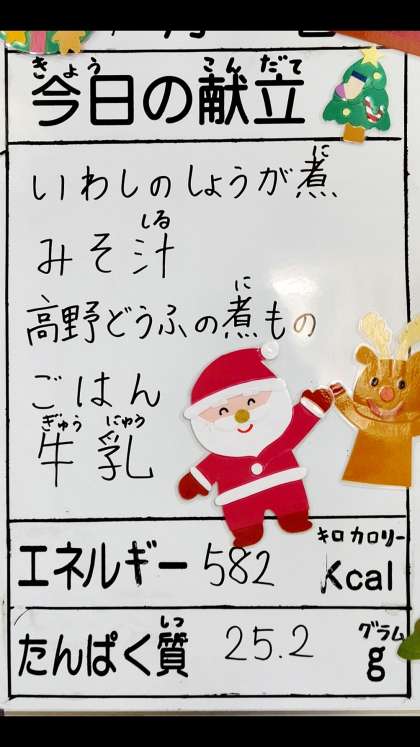 きょう こんだて
今日の献立
に
いわしのしょうが煮
しる
みそ汁
に
高野どうふの煮もの
ごはん
ぎゅう にゅう
牛乳
キロカロリー
エネルギー 582 Kcal
しつ グラム
たんぱく質 25.2 g